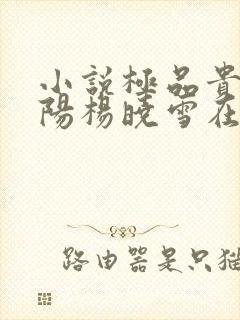 小說極品貴
陽楊曉雪在
路由器是只猫